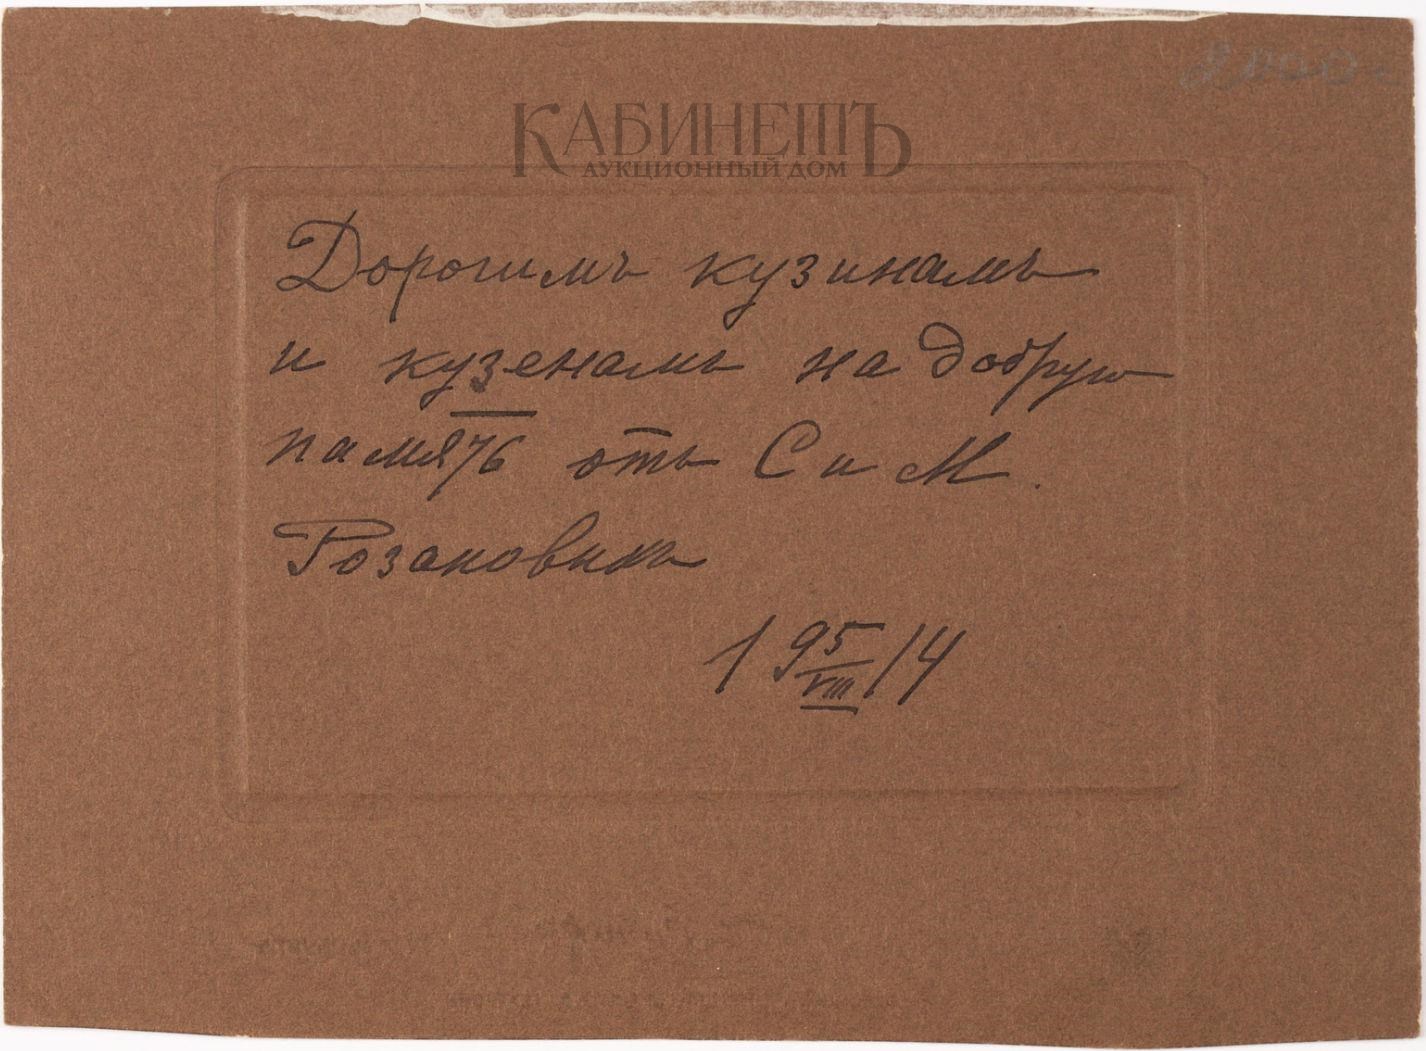 2000-
КАБИНЕТЪ
АУКЦИОННЫЙ ДОМ
Дорогимъ кузинамъ
и кузенамъ на добрую
память отъ С и М.
1 9 5/VIII 14